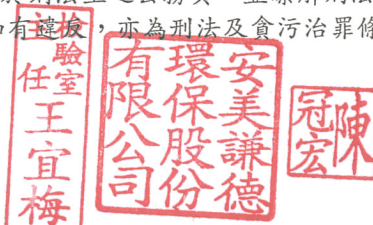 如有違反,亦為刑法及貪污治罪條
檢驗室
主任
王宜梅
安美謙德
環保股份
有限公司
陳
冠宏